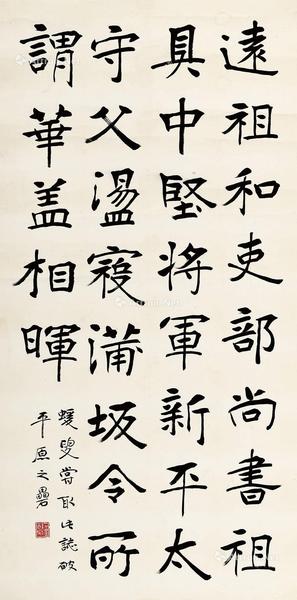 遠祖和吏部尚書祖
具中堅将軍新平太
守父溫寇蒲坂令所
謂華盖相暉
蝯叟嘗取此誌破
平原之壘